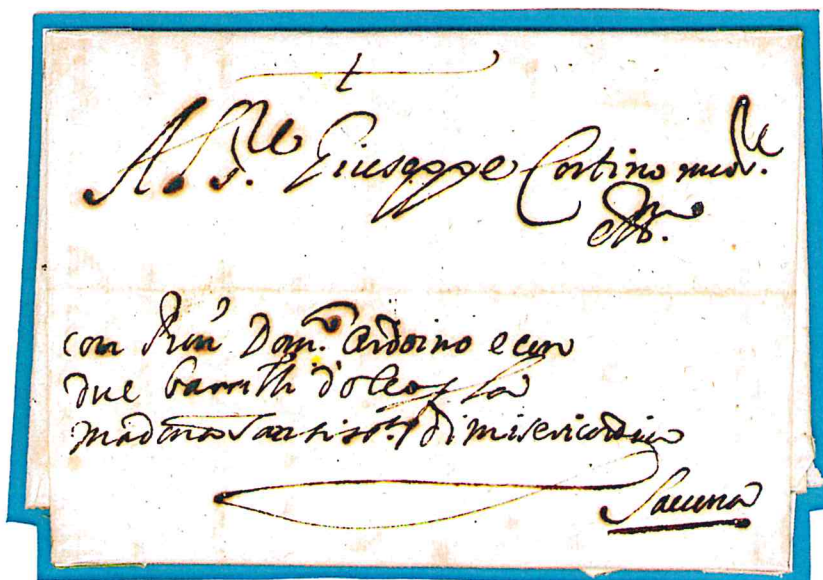 Al Sr.e Giuseppe Cortino mio Sr.e
con Dom.co Ardoino e con
due barrilli d'oleo p la
madona Santis.ma di misericordia
Savona